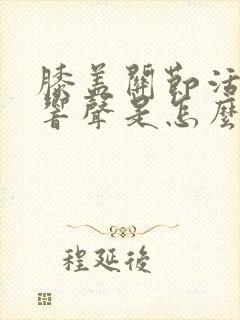 膝盖關節活
響聲是怎麼
程延後